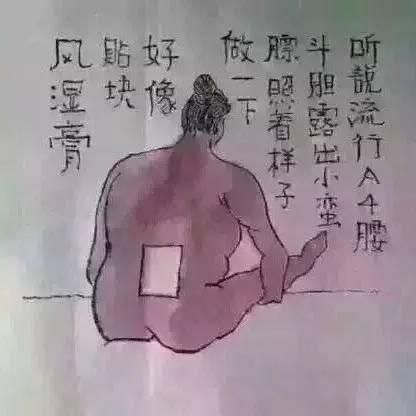 听說流行A4腰
斗胆露出小蛮
膘照着样子
做一下
好像
貼块
风湿膏